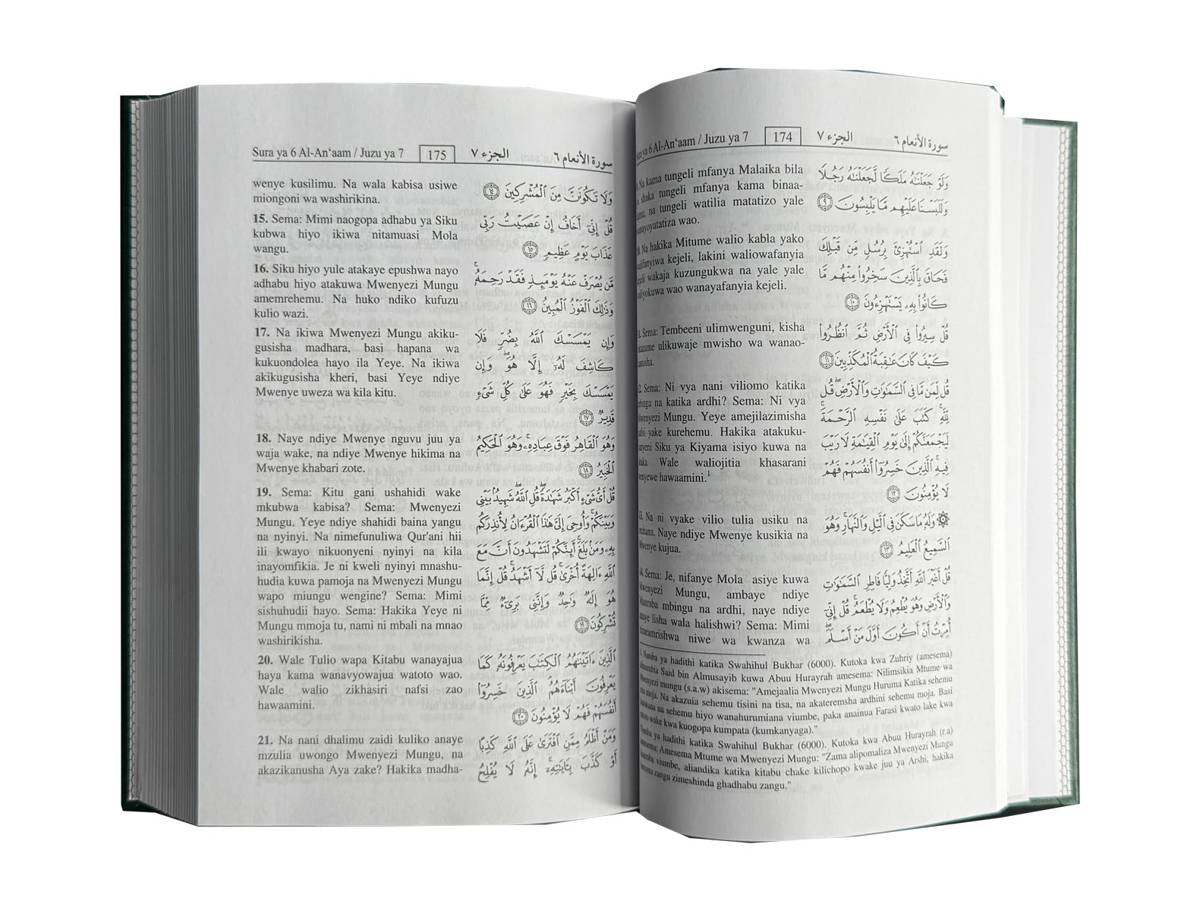 ya 6 Al-An‘aam / Juzu ya 7 174 الجزء ٧ سورة الأنعام ٦
Na kama tungeli mfanya Malaika bila
shaka tungeli mfanya kama binaa-
na tungeli watilia matatizo yale
wao.
Na hakika Mitume walio kabla yako
kejeli, lakini waliowafanyia
wakaja kuzungukwa na yale yale
wao wanayafanyia kejeli.
Sema: Tembeeni ulimwenguni, kisha
ulikuwaje mwisho wa wanao-
Sema: Ni vya nani viliomo katika
na katika ardhi? Sema: Ni vya
Mungu. Yeye amejilazimisha
yake kurehemu. Hakika atakuku-
Siku ya Kiyama isiyo kuwa na
Wale waliojitia khasarani
hawaamini.¹
Na ni vyake vilio tulia usiku na
Naye ndiye Mwenye kusikia na
kujua.
Sema: Je, nifanye Mola asiye kuwa
Mungu, ambaye ndiye
mbingu na ardhi, naye ndiye
lisha wala halishwi? Sema: Mimi
niwe wa kwanza wa
وَلَوْ جَعَلْنَٰهُ مَلَكًا لَّجَعَلْنَٰهُ رَجُلًا
وَلَلَبَسْنَا عَلَيْهِم مَّا يَلْبِسُونَ ۝٩
وَلَقَدِ ٱسْتُهْزِئَ بِرُسُلٍ مِّن قَبْلِكَ
فَحَاقَ بِٱلَّذِينَ سَخِرُوا۟ مِنْهُم مَّا
كَانُوا۟ بِهِۦ يَسْتَهْزِءُونَ ۝١٠
قُلْ سِيرُوا۟ فِى ٱلْأَرْضِ ثُمَّ ٱنظُرُوا۟
كَيْفَ كَانَ عَٰقِبَةُ ٱلْمُكَذِّبِينَ ۝١١
قُل لِّمَن مَّا فِى ٱلسَّمَٰوَٰتِ وَٱلْأَرْضِ ۖ قُل
لِّلَّهِ ۚ كَتَبَ عَلَىٰ نَفْسِهِ ٱلرَّحْمَةَ ۚ
لَيَجْمَعَنَّكُمْ إِلَىٰ يَوْمِ ٱلْقِيَٰمَةِ لَا رَيْبَ
فِيهِ ۚ ٱلَّذِينَ خَسِرُوٓا۟ أَنفُسَهُمْ فَهُمْ
لَا يُؤْمِنُونَ ۝١٢
۞ وَلَهُۥ مَا سَكَنَ فِى ٱلَّيْلِ وَٱلنَّهَارِ ۚ وَهُوَ
ٱلسَّمِيعُ ٱلْعَلِيمُ ۝١٣
قُلْ أَغَيْرَ ٱللَّهِ أَتَّخِذُ وَلِيًّا فَاطِرِ ٱلسَّمَٰوَٰتِ
وَٱلْأَرْضِ وَهُوَ يُطْعِمُ وَلَا يُطْعَمُ ۗ قُلْ إِنِّىٓ
أُمِرْتُ أَنْ أَكُونَ أَوَّلَ مَنْ أَسْلَمَ ۖ
ya hadithi katika Swahihul Bukhar (6000). Kutoka kwa Zuhriy (amesema)
Said bin Almusayib kuwa Abuu Hurayrah amesema: Nilimsikia Mtume wa
mungu (s.a.w) akisema: "Amejaalia Mwenyezi Mungu Huruma Katika sehemu
moja. Na akazuia sehemu tisini na tisa, na akateremsha ardhini sehemu moja. Basi
na sehemu hiyo wanahurumiana viumbe, paka anainua Farasi kwato lake kwa
wake kwa kuogopa kumpata (kumkanyaga)."
ya hadithi katika Swahihul Bukhar (6000). Kutoka kwa Abuu Hurayrah (r.a)
Amesema Mtume wa Mwenyezi Mungu: "Zama alipomaliza Mwenyezi Mungu
viumbe, aliandika katika kitabu chake kilichopo kwake juu ya Arshi, hakika
zangu zimeshinda ghadhabu zangu."
Sura ya 6 Al-An‘aam / Juzu ya 7 175 الجزء ٧ سورة الأنعام ٦
wenye kusilimu. Na wala kabisa usiwe
miongoni wa washirikina.
15. Sema: Mimi naogopa adhabu ya Siku
kubwa hiyo ikiwa nitamuasi Mola
wangu.
16. Siku hiyo yule atakaye epushwa nayo
adhabu hiyo atakuwa Mwenyezi Mungu
amemrehemu. Na huko ndiko kufuzu
kulio wazi.
17. Na ikiwa Mwenyezi Mungu akiku-
gusisha madhara, basi hapana wa
kukuondolea hayo ila Yeye. Na ikiwa
akikugusisha kheri, basi Yeye ndiye
Mwenye uweza wa kila kitu.
18. Naye ndiye Mwenye nguvu juu ya
waja wake, na ndiye Mwenye hikima na
Mwenye khabari zote.
19. Sema: Kitu gani ushahidi wake
mkubwa kabisa? Sema: Mwenyezi
Mungu. Yeye ndiye shahidi baina yangu
na nyinyi. Na nimefunuliwa Qur'ani hii
ili kwayo nikuonyeni nyinyi na kila
inayomfikia. Je ni kweli nyinyi mnashu-
hudia kuwa pamoja na Mwenyezi Mungu
wapo miungu wengine? Sema: Mimi
sishuhudii hayo. Sema: Hakika Yeye ni
Mungu mmoja tu, nami ni mbali na mnao
washirikisha.
20. Wale Tulio wapa Kitabu wanayajua
haya kama wanavyowajua watoto wao.
Wale walio zikhasiri nafsi zao
hawaamini.
21. Na nani dhalimu zaidi kuliko anaye
mzulia uwongo Mwenyezi Mungu, na
akazikanusha Aya zake? Hakika madha-
وَلَا تَكُونَنَّ مِنَ ٱلْمُشْرِكِينَ ۝١٤
قُلْ إِنِّىٓ أَخَافُ إِنْ عَصَيْتُ رَبِّى
عَذَابَ يَوْمٍ عَظِيمٍ ۝١٥
مَّن يُصْرَفْ عَنْهُ يَوْمَئِذٍ فَقَدْ رَحِمَهُۥ ۚ
وَذَٰلِكَ ٱلْفَوْزُ ٱلْمُبِينُ ۝١٦
وَإِن يَمْسَسْكَ ٱللَّهُ بِضُرٍّ فَلَا
كَاشِفَ لَهُۥٓ إِلَّا هُوَ ۖ وَإِن
يَمْسَسْكَ بِخَيْرٍ فَهُوَ عَلَىٰ كُلِّ شَىْءٍ
قَدِيرٌ ۝١٧
وَهُوَ ٱلْقَاهِرُ فَوْقَ عِبَادِهِۦ ۚ وَهُوَ ٱلْحَكِيمُ
ٱلْخَبِيرُ ۝١٨
قُلْ أَىُّ شَىْءٍ أَكْبَرُ شَهَٰدَةً ۖ قُلِ ٱللَّهُ ۖ شَهِيدٌۢ بَيْنِى
وَبَيْنَكُمْ ۚ وَأُوحِىَ إِلَىَّ هَٰذَا ٱلْقُرْءَانُ لِأُنذِرَكُم
بِهِۦ وَمَنۢ بَلَغَ ۚ أَئِنَّكُمْ لَتَشْهَدُونَ أَنَّ مَعَ
ٱللَّهِ ءَالِهَةً أُخْرَىٰ ۚ قُل لَّآ أَشْهَدُ ۚ قُلْ إِنَّمَا
هُوَ إِلَٰهٌ وَٰحِدٌ وَإِنَّنِى بَرِىٓءٌ مِّمَّا
تُشْرِكُونَ ۝١٩
ٱلَّذِينَ ءَاتَيْنَٰهُمُ ٱلْكِتَٰبَ يَعْرِفُونَهُۥ كَمَا
يَعْرِفُونَ أَبْنَآءَهُمُ ۘ ٱلَّذِينَ خَسِرُوٓا۟
أَنفُسَهُمْ فَهُمْ لَا يُؤْمِنُونَ ۝٢٠
وَمَنْ أَظْلَمُ مِمَّنِ ٱفْتَرَىٰ عَلَى ٱللَّهِ كَذِبًا
أَوْ كَذَّبَ بِـَٔايَٰتِهِۦٓ ۗ إِنَّهُۥ لَا يُفْلِحُ